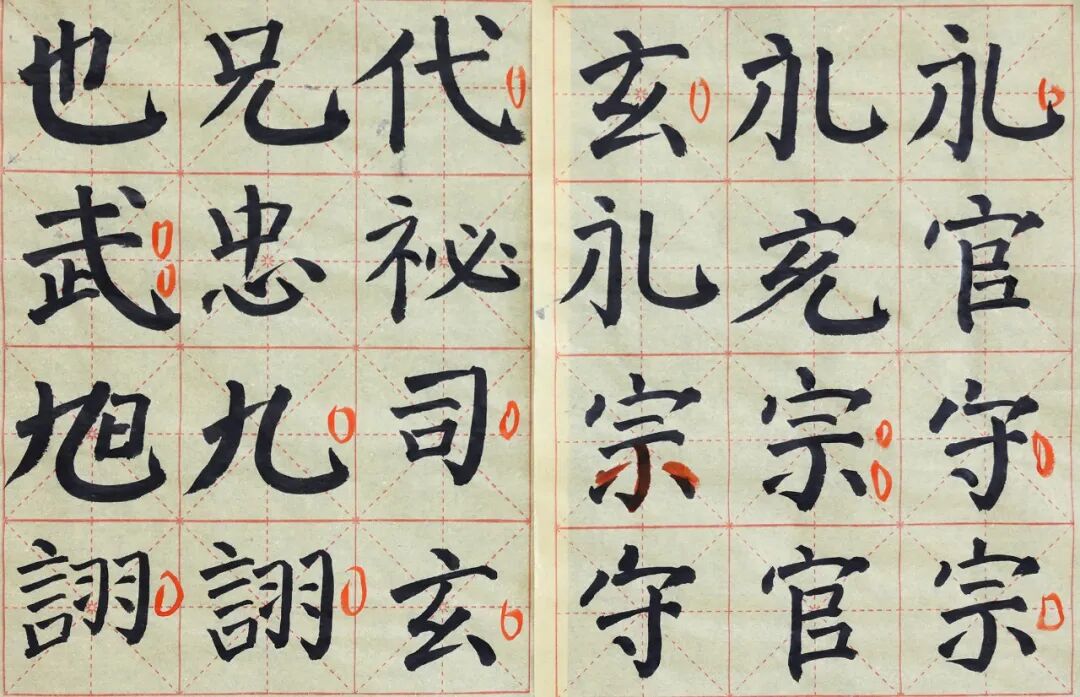 礼官守宗
礼充宗官
玄礼宗守
代祕司玄
兄忠九詡
也武旭詡